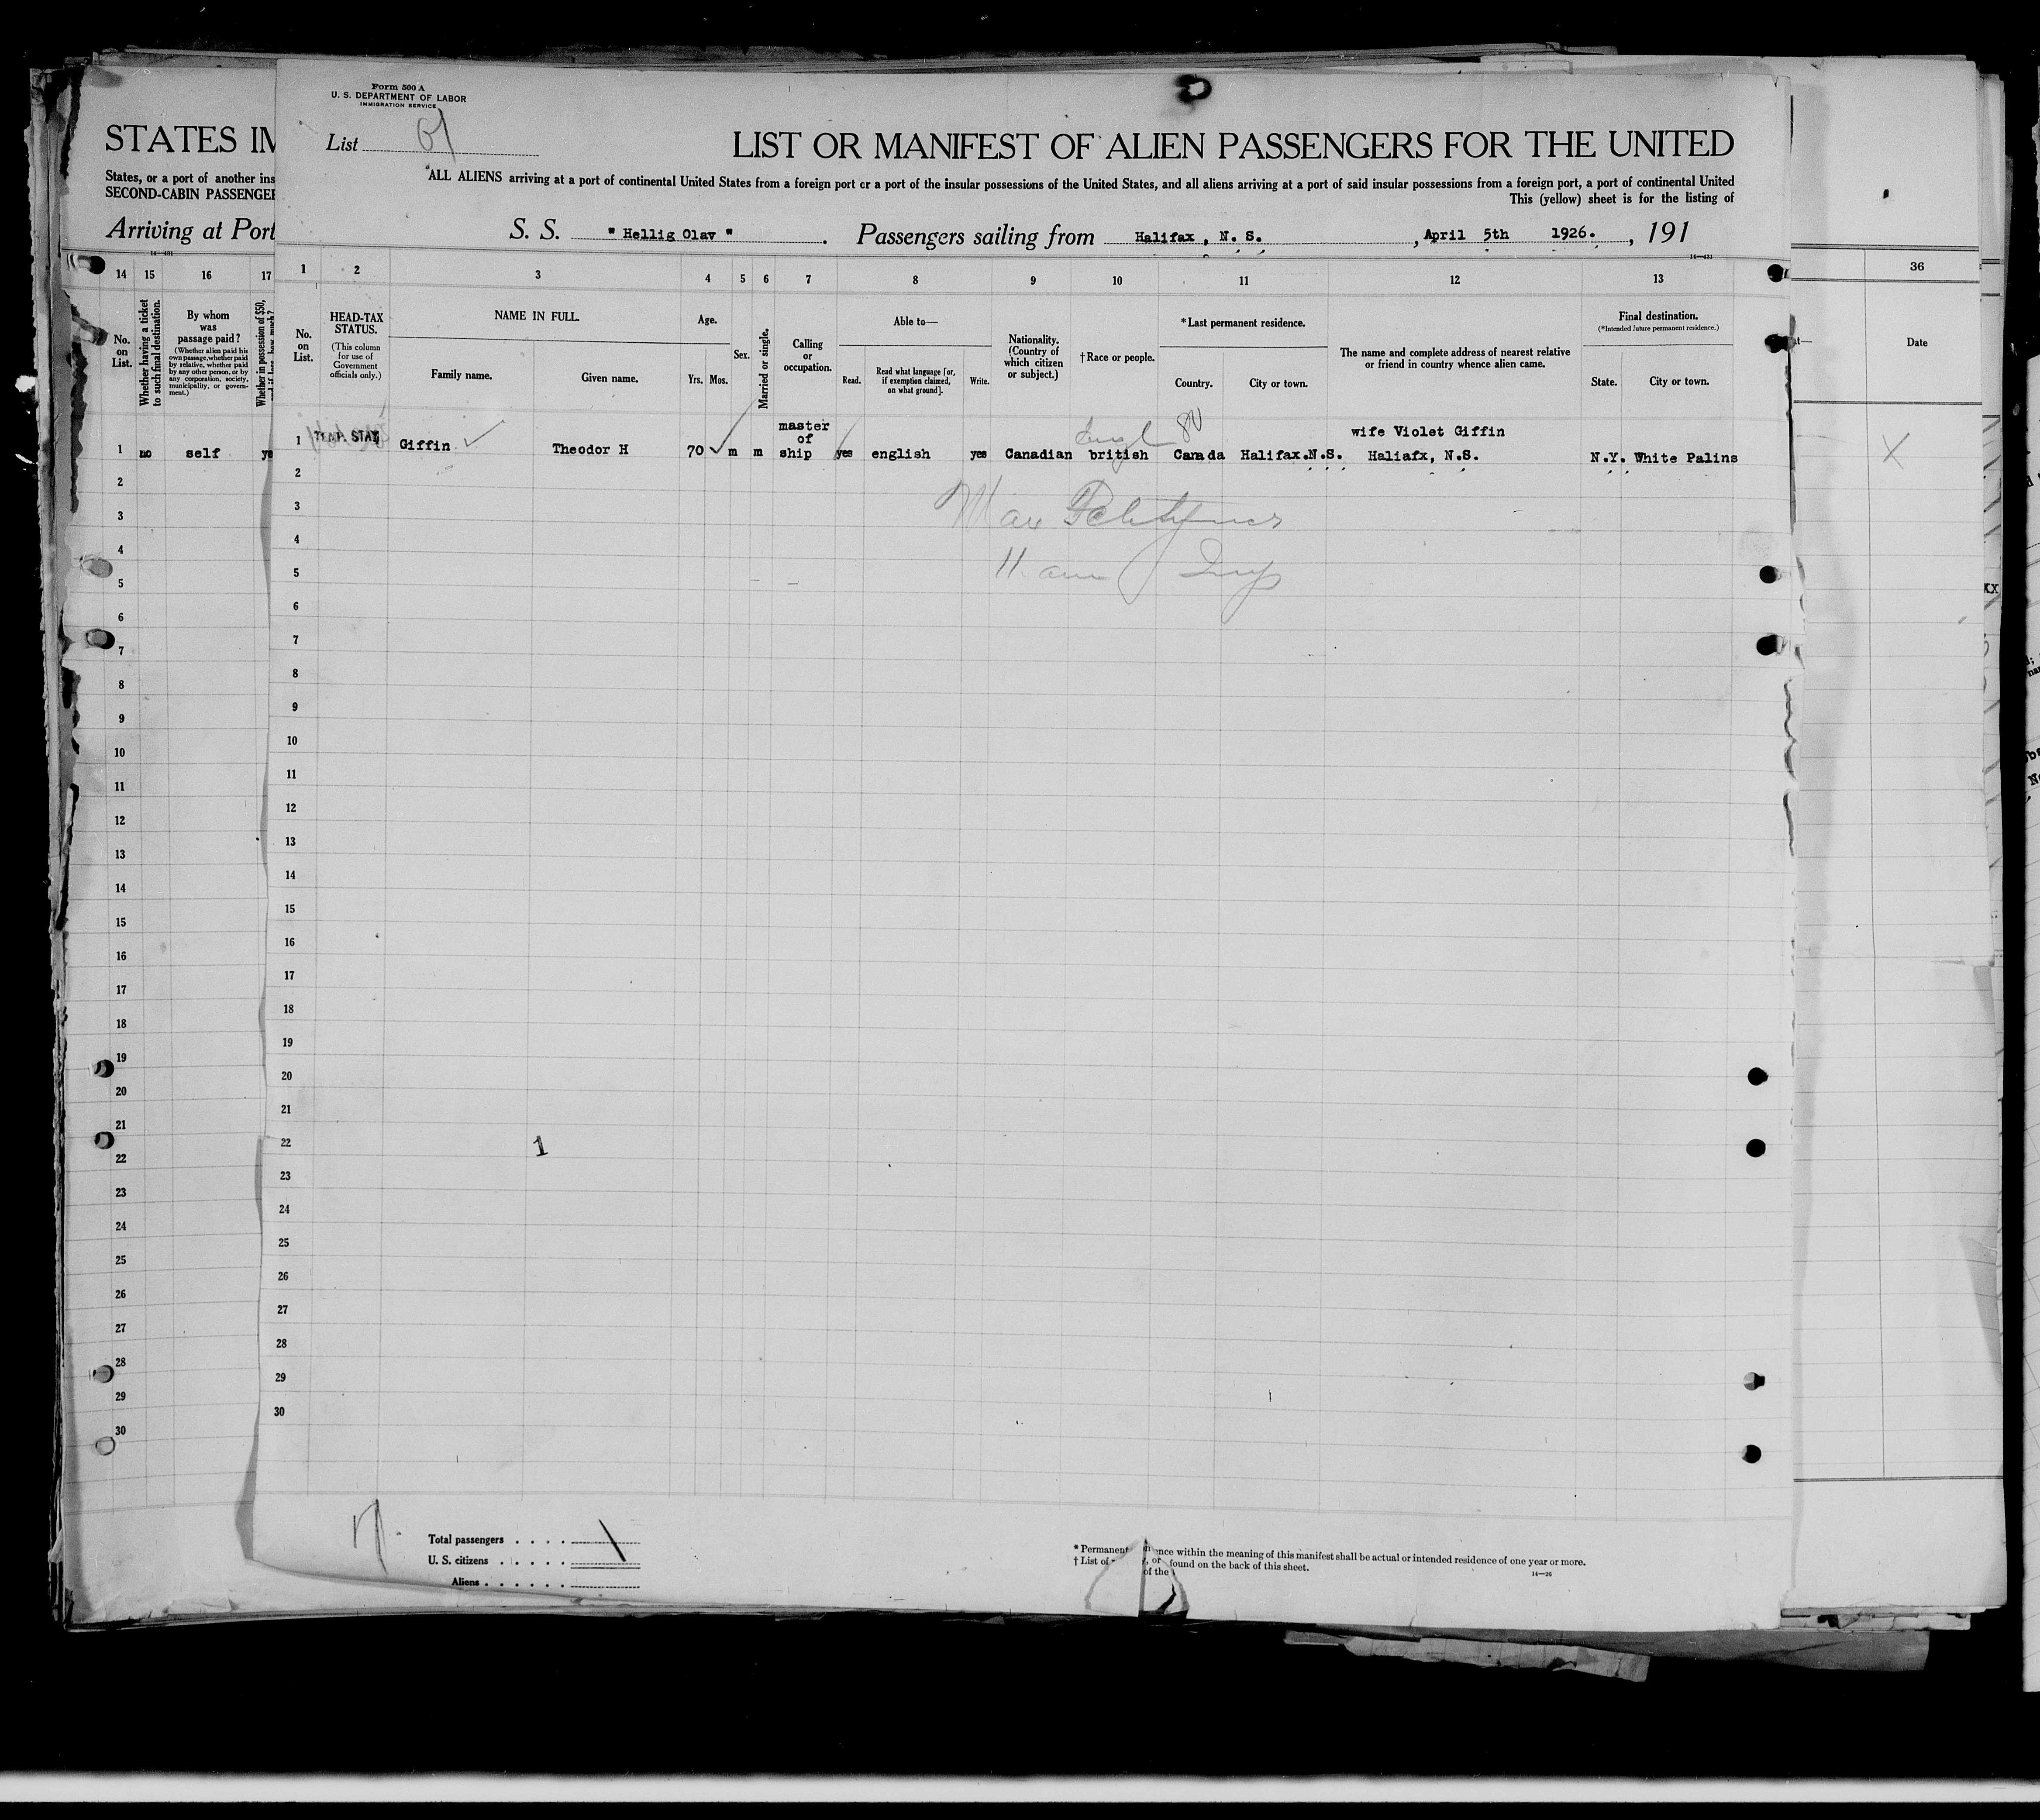 Form 500 A
U. S. DEPARTMENT OF LABOR
IMMIGRATION SERVICE
List
LIST OR MANIFEST OF ALIEN PASSENGERS FOR THE UNITED
ALL ALIENS arriving at a port of continental United States from a foreign port or a port of the insular possessions of the United States, and all aliens arriving at a port of said insular possessions from a foreign port, a port of continental United
This (yellow) sheet is for the listing of
S. S. "Hellig Olav". Passengers sailing from Halifax, N. S., April 5th 1926., 191
14—431
STATES IM
States, or a port of another ins
SECOND-CABIN PASSENGER
Arriving at Port
14—431
14 15 16 17
No. on List.
Whether having a ticket to such final destination.
By whom was passage paid?
(Whether alien paid his own passage, whether paid by relative, whether paid by any other person, or by any corporation, society, municipality, or government.)
Whether in possession of $50,
1 no self ye
2
3
4
5
6
7
8
9
10
11
12
13
14
15
16
17
18
19
20
21
22
23
24
25
26
27
28
29
30
1 2 3 4 5 6 7 8 9 10 11 12 13
No. on List.
HEAD-TAX STATUS.
(This column for use of Government officials only.)
NAME IN FULL.
Family name.
Given name.
Age.
Yrs. Mos.
Sex.
Married or single.
Calling or occupation.
Able to—
Read.
Read what language [or, if exemption claimed, on what ground].
Write.
Nationality. (Country of which citizen or subject.)
†Race or people.
*Last permanent residence.
Country.
City or town.
The name and complete address of nearest relative or friend in country whence alien came.
Final destination.
(*Intended future permanent residence.)
State.
City or town.
1 TEMP. STAY Giffin Theodor H 70 m m master of ship yes english yes Canadian british Canada Halifax.N.S. wife Violet Giffin Haliafx, N.S. N.Y. White Palins
2
3
4
5
6
7
8
9
10
11
12
13
14
15
16
17
18
19
20
21
22
1
23
24
25
26
27
28
29
30
Total passengers
U. S. citizens
Aliens
* Permanent ence within the meaning of this manifest shall be actual or intended residence of one year or more.
† List of found on the back of this sheet.
14—26
36
Date
X